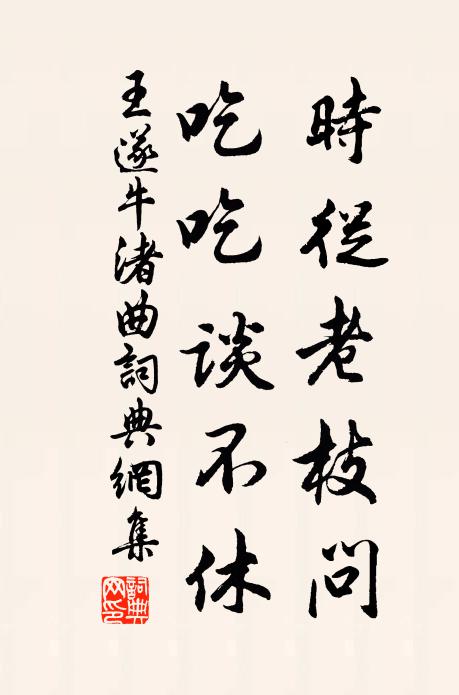 時從老枝問
吃吃談不休
王遂牛渚曲詞典網集
詞典网印